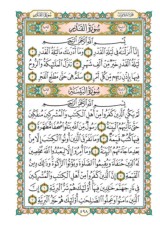 سُورَةُ القَدْرِ
بِسْمِ اللَّهِ الرَّحْمَٰنِ الرَّحِيمِ
إِنَّا أَنزَلْنَاهُ فِي لَيْلَةِ الْقَدْرِ ۝ وَمَا أَدْرَاكَ مَا لَيْلَةُ الْقَدْرِ ۝
لَيْلَةُ الْقَدْرِ خَيْرٌ مِّنْ أَلْفِ شَهْرٍ ۝ تَنَزَّلُ الْمَلَائِكَةُ وَالرُّوحُ
فِيهَا بِإِذْنِ رَبِّهِم مِّن كُلِّ أَمْرٍ ۝ سَلَامٌ هِيَ حَتَّىٰ مَطْلَعِ الْفَجْرِ ۝
سُورَةُ البَيِّنَةِ
بِسْمِ اللَّهِ الرَّحْمَٰنِ الرَّحِيمِ
لَمْ يَكُنِ الَّذِينَ كَفَرُوا مِنْ أَهْلِ الْكِتَابِ وَالْمُشْرِكِينَ مُنفَكِّينَ
حَتَّىٰ تَأْتِيَهُمُ الْبَيِّنَةُ ۝ رَسُولٌ مِّنَ اللَّهِ يَتْلُو صُحُفًا مُّطَهَّرَةً ۝
فِيهَا كُتُبٌ قَيِّمَةٌ ۝ وَمَا تَفَرَّقَ الَّذِينَ أُوتُوا الْكِتَابَ إِلَّا مِن بَعْدِ
مَا جَاءَتْهُمُ الْبَيِّنَةُ ۝ وَمَا أُمِرُوا إِلَّا لِيَعْبُدُوا اللَّهَ مُخْلِصِينَ لَهُ الدِّينَ
حُنَفَاءَ وَيُقِيمُوا الصَّلَاةَ وَيُؤْتُوا الزَّكَاةَ وَذَٰلِكَ دِينُ الْقَيِّمَةِ ۝
إِنَّ الَّذِينَ كَفَرُوا مِنْ أَهْلِ الْكِتَابِ وَالْمُشْرِكِينَ
فِي نَارِ جَهَنَّمَ خَالِدِينَ فِيهَا أُولَٰئِكَ هُمْ شَرُّ الْبَرِيَّةِ ۝
إِنَّ الَّذِينَ آمَنُوا وَعَمِلُوا الصَّالِحَاتِ أُولَٰئِكَ هُمْ خَيْرُ الْبَرِيَّةِ ۝
٥٩٨